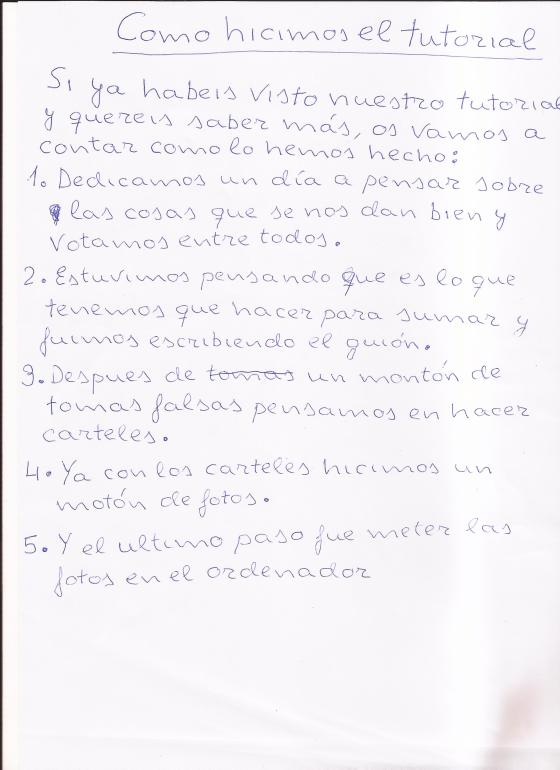 Como hicimos el tutorial
Si ya habeis visto nuestro tutorial
y quereis saber más, os vamos a
contar como lo hemos hecho:
1. Dedicamos un día a pensar sobre
las cosas que se nos dan bien y
votamos entre todos.
2. Estuvimos pensando que es lo que
tenemos que hacer para sumar y
fuimos escribiendo el guión.
3. Despues de tomas un montón de
tomas falsas pensamos en hacer
carteles.
4. Ya con los carteles hicimos un
motón de fotos.
5. Y el ultimo paso fue meter las
fotos en el ordenador